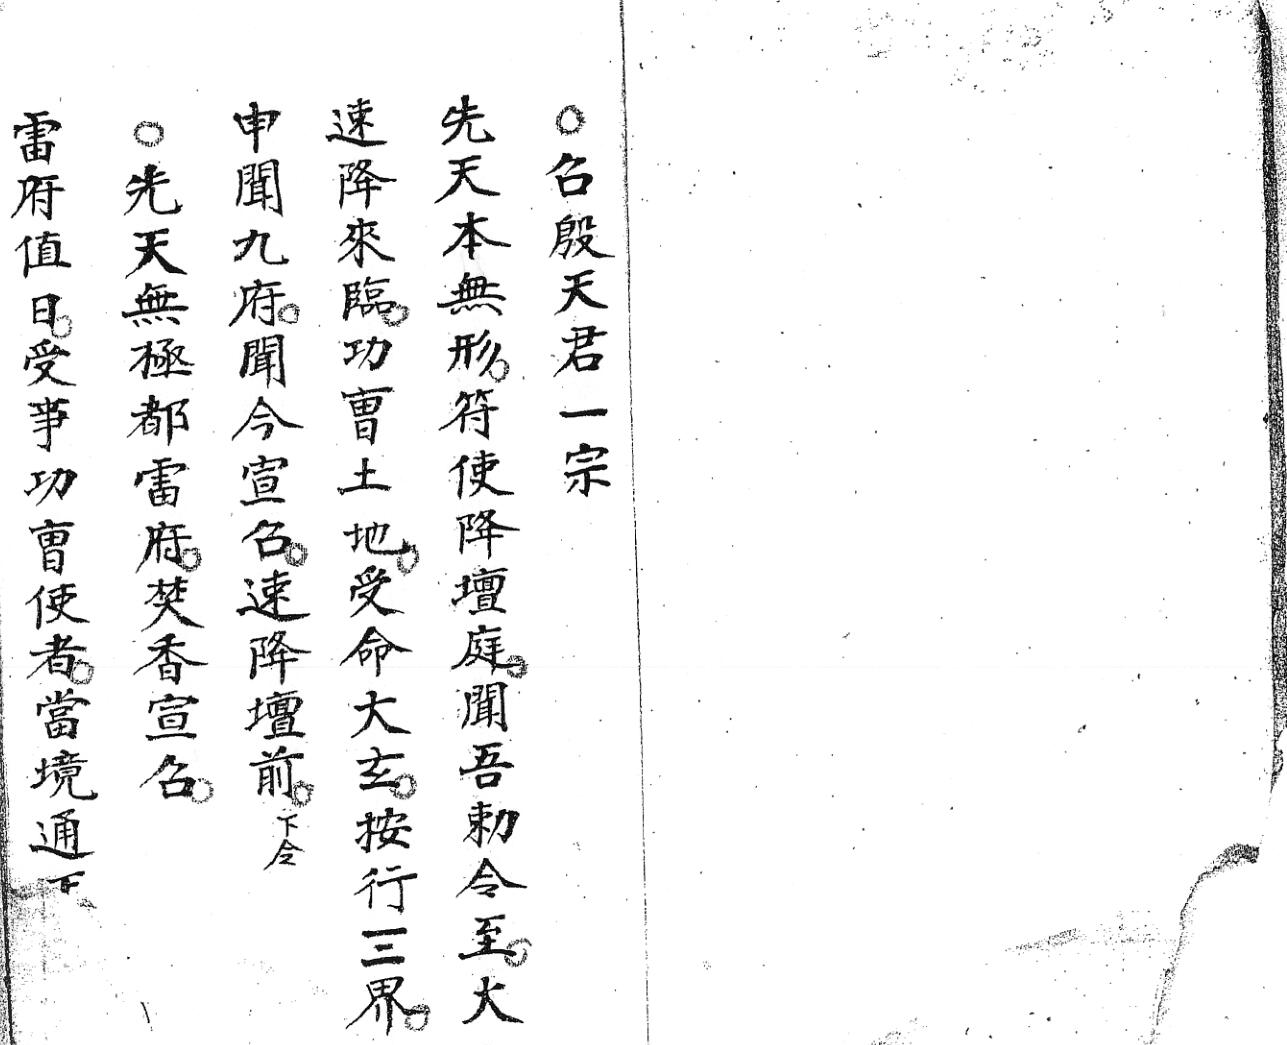 ○召殷天君一宗
先天本無形○符使降壇庭○聞吾勅令至○大
速降來臨○功曺土地○受命大玄○按行三界○
申聞九府○聞今宣召○速降壇前○下令
○先天無極都雷府○焚香宣召○
雷府值日○受事功曺使者○當境通下